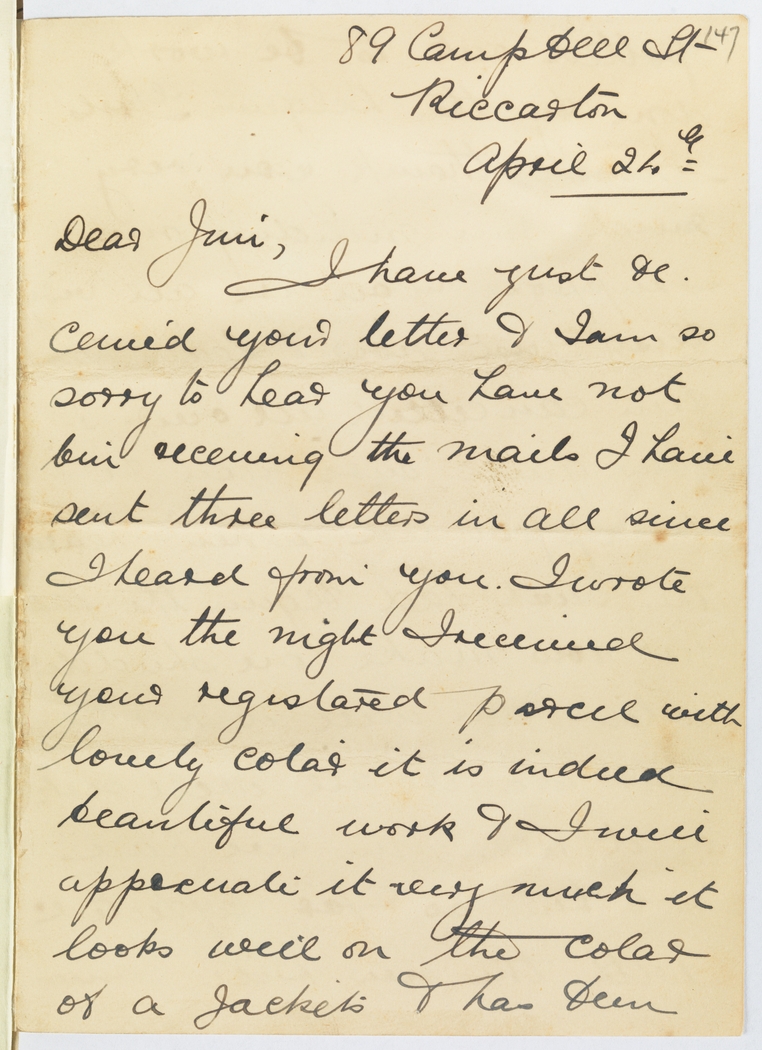 89 Campbell St 147
Riccarton
April 24th
Dear Jim,
I have just re.
ceived your letter & I am so
sorry to hear you have not
bin receiving the mails I have
sent three letters in all since
I heard from you. I wrote
you the night I received
your registared parcel with
lovely colar it is indeed
beautiful work & I will
appreciate it very much it
looks well on the colar
of a jackets & has been